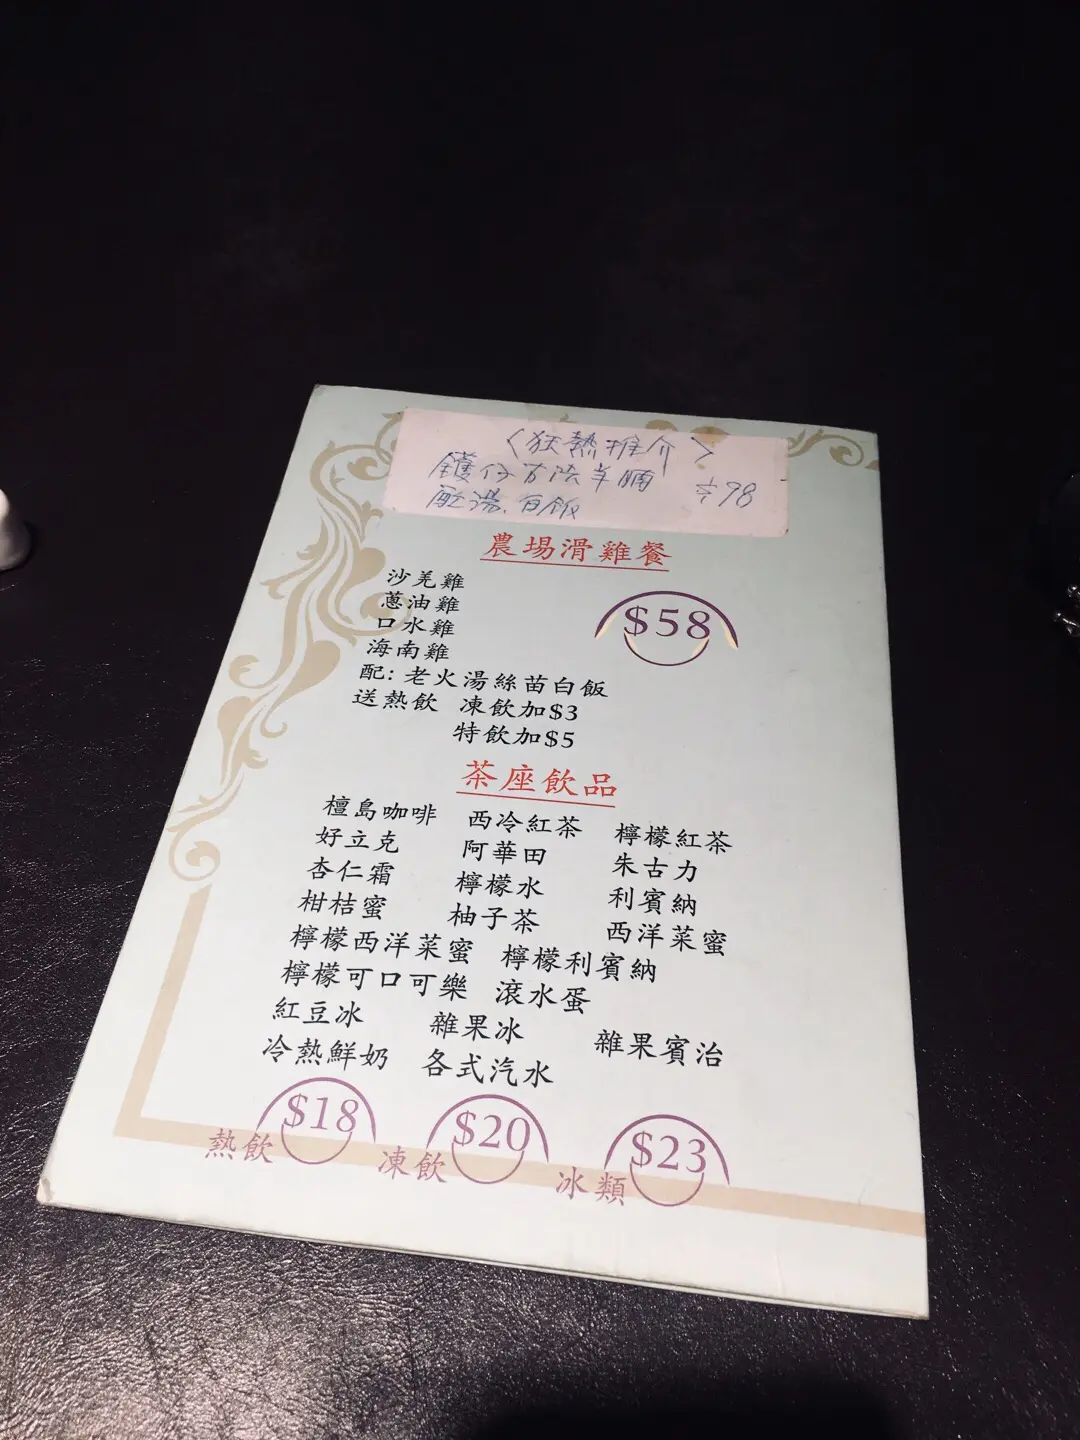 〈狂熱推介〉
鑊仔古法羊腩 $98
配湯、白飯
農場滑雞餐
沙羌雞
蔥油雞
口水雞
海南雞
$58
配: 老火湯絲苗白飯
送熱飲 凍飲加$3
特飲加$5
茶座飲品
檀島咖啡 西冷紅茶 檸檬紅茶
好立克 阿華田 朱古力
杏仁霜 檸檬水 利賓納
柑桔蜜 柚子茶 西洋菜蜜
檸檬西洋菜蜜 檸檬利賓納
檸檬可口可樂 滾水蛋
紅豆冰 雜果冰 雜果賓治
冷熱鮮奶 各式汽水
熱飲 $18 凍飲 $20 冰類 $23